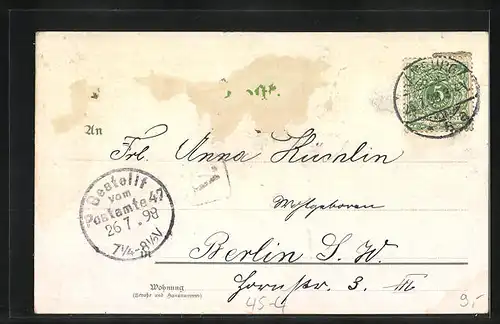 5
An
Frl. Anna Küsnlin
Bestellt
vom
Postamte 47
26 7. 98
7¼-8½V
Wohlgeboren
Berlin S. W.
Wohnung
(Straße und Hausnummer)
Hornstr. 3. III.
45-4
9.-